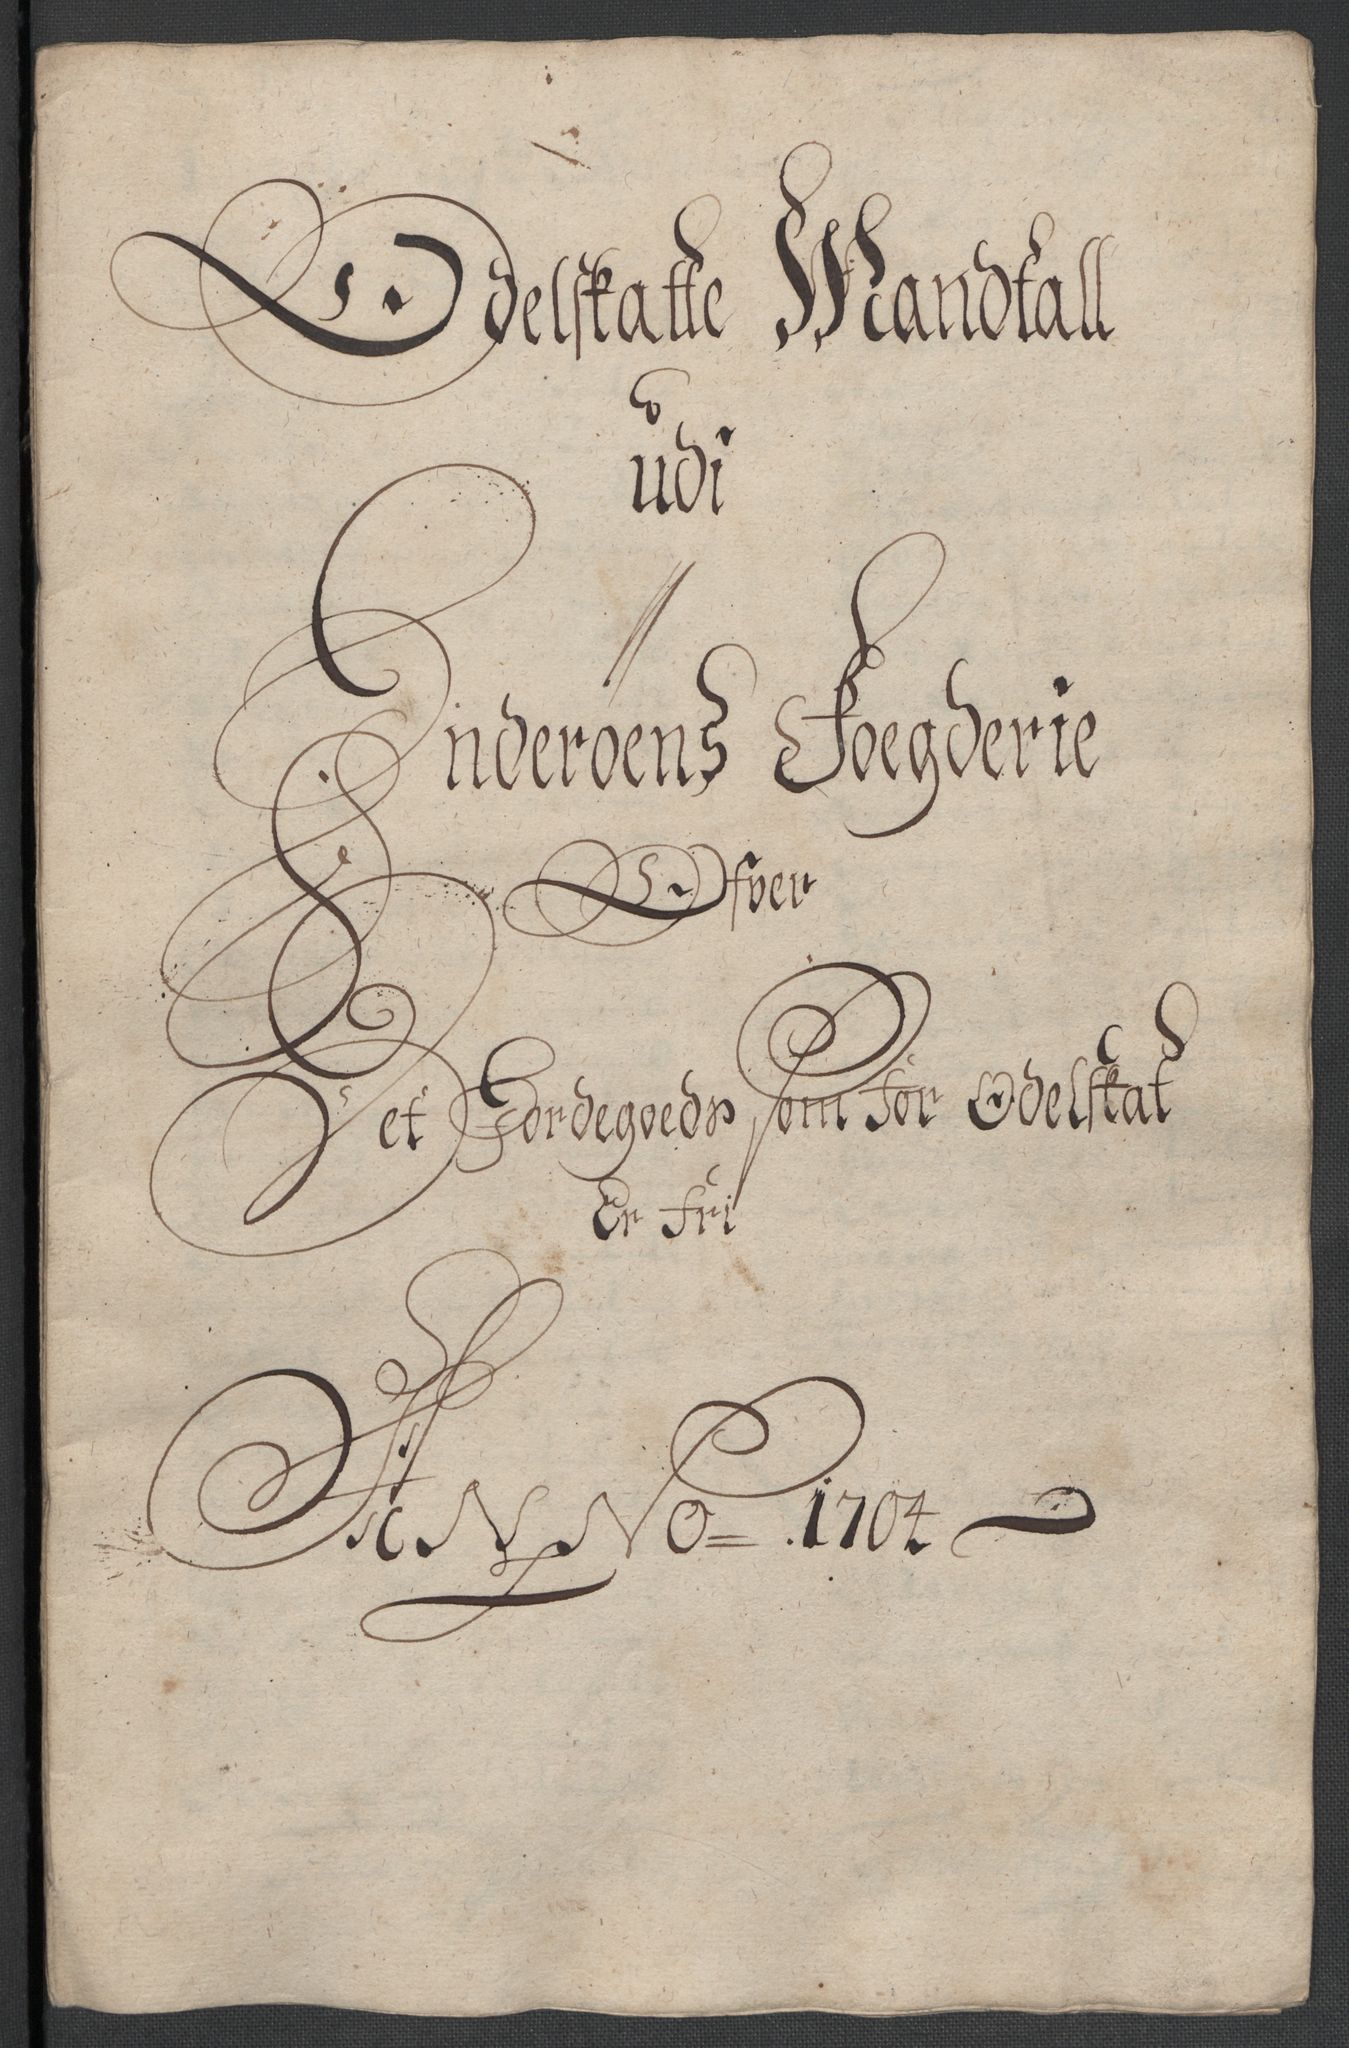 Odelskatte Mandtall
udi
Inderøens Foegderie
Ofver
Det Jordegoeds som for Odelskat
Er fri
ANNO = 1704